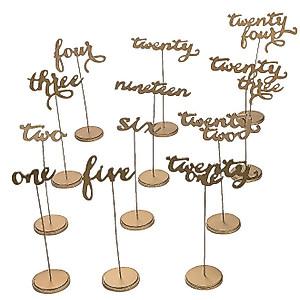 four
twenty
twenty
four
three
nineteen
twenty
three
two
six
twenty
two
one
five
twenty
one